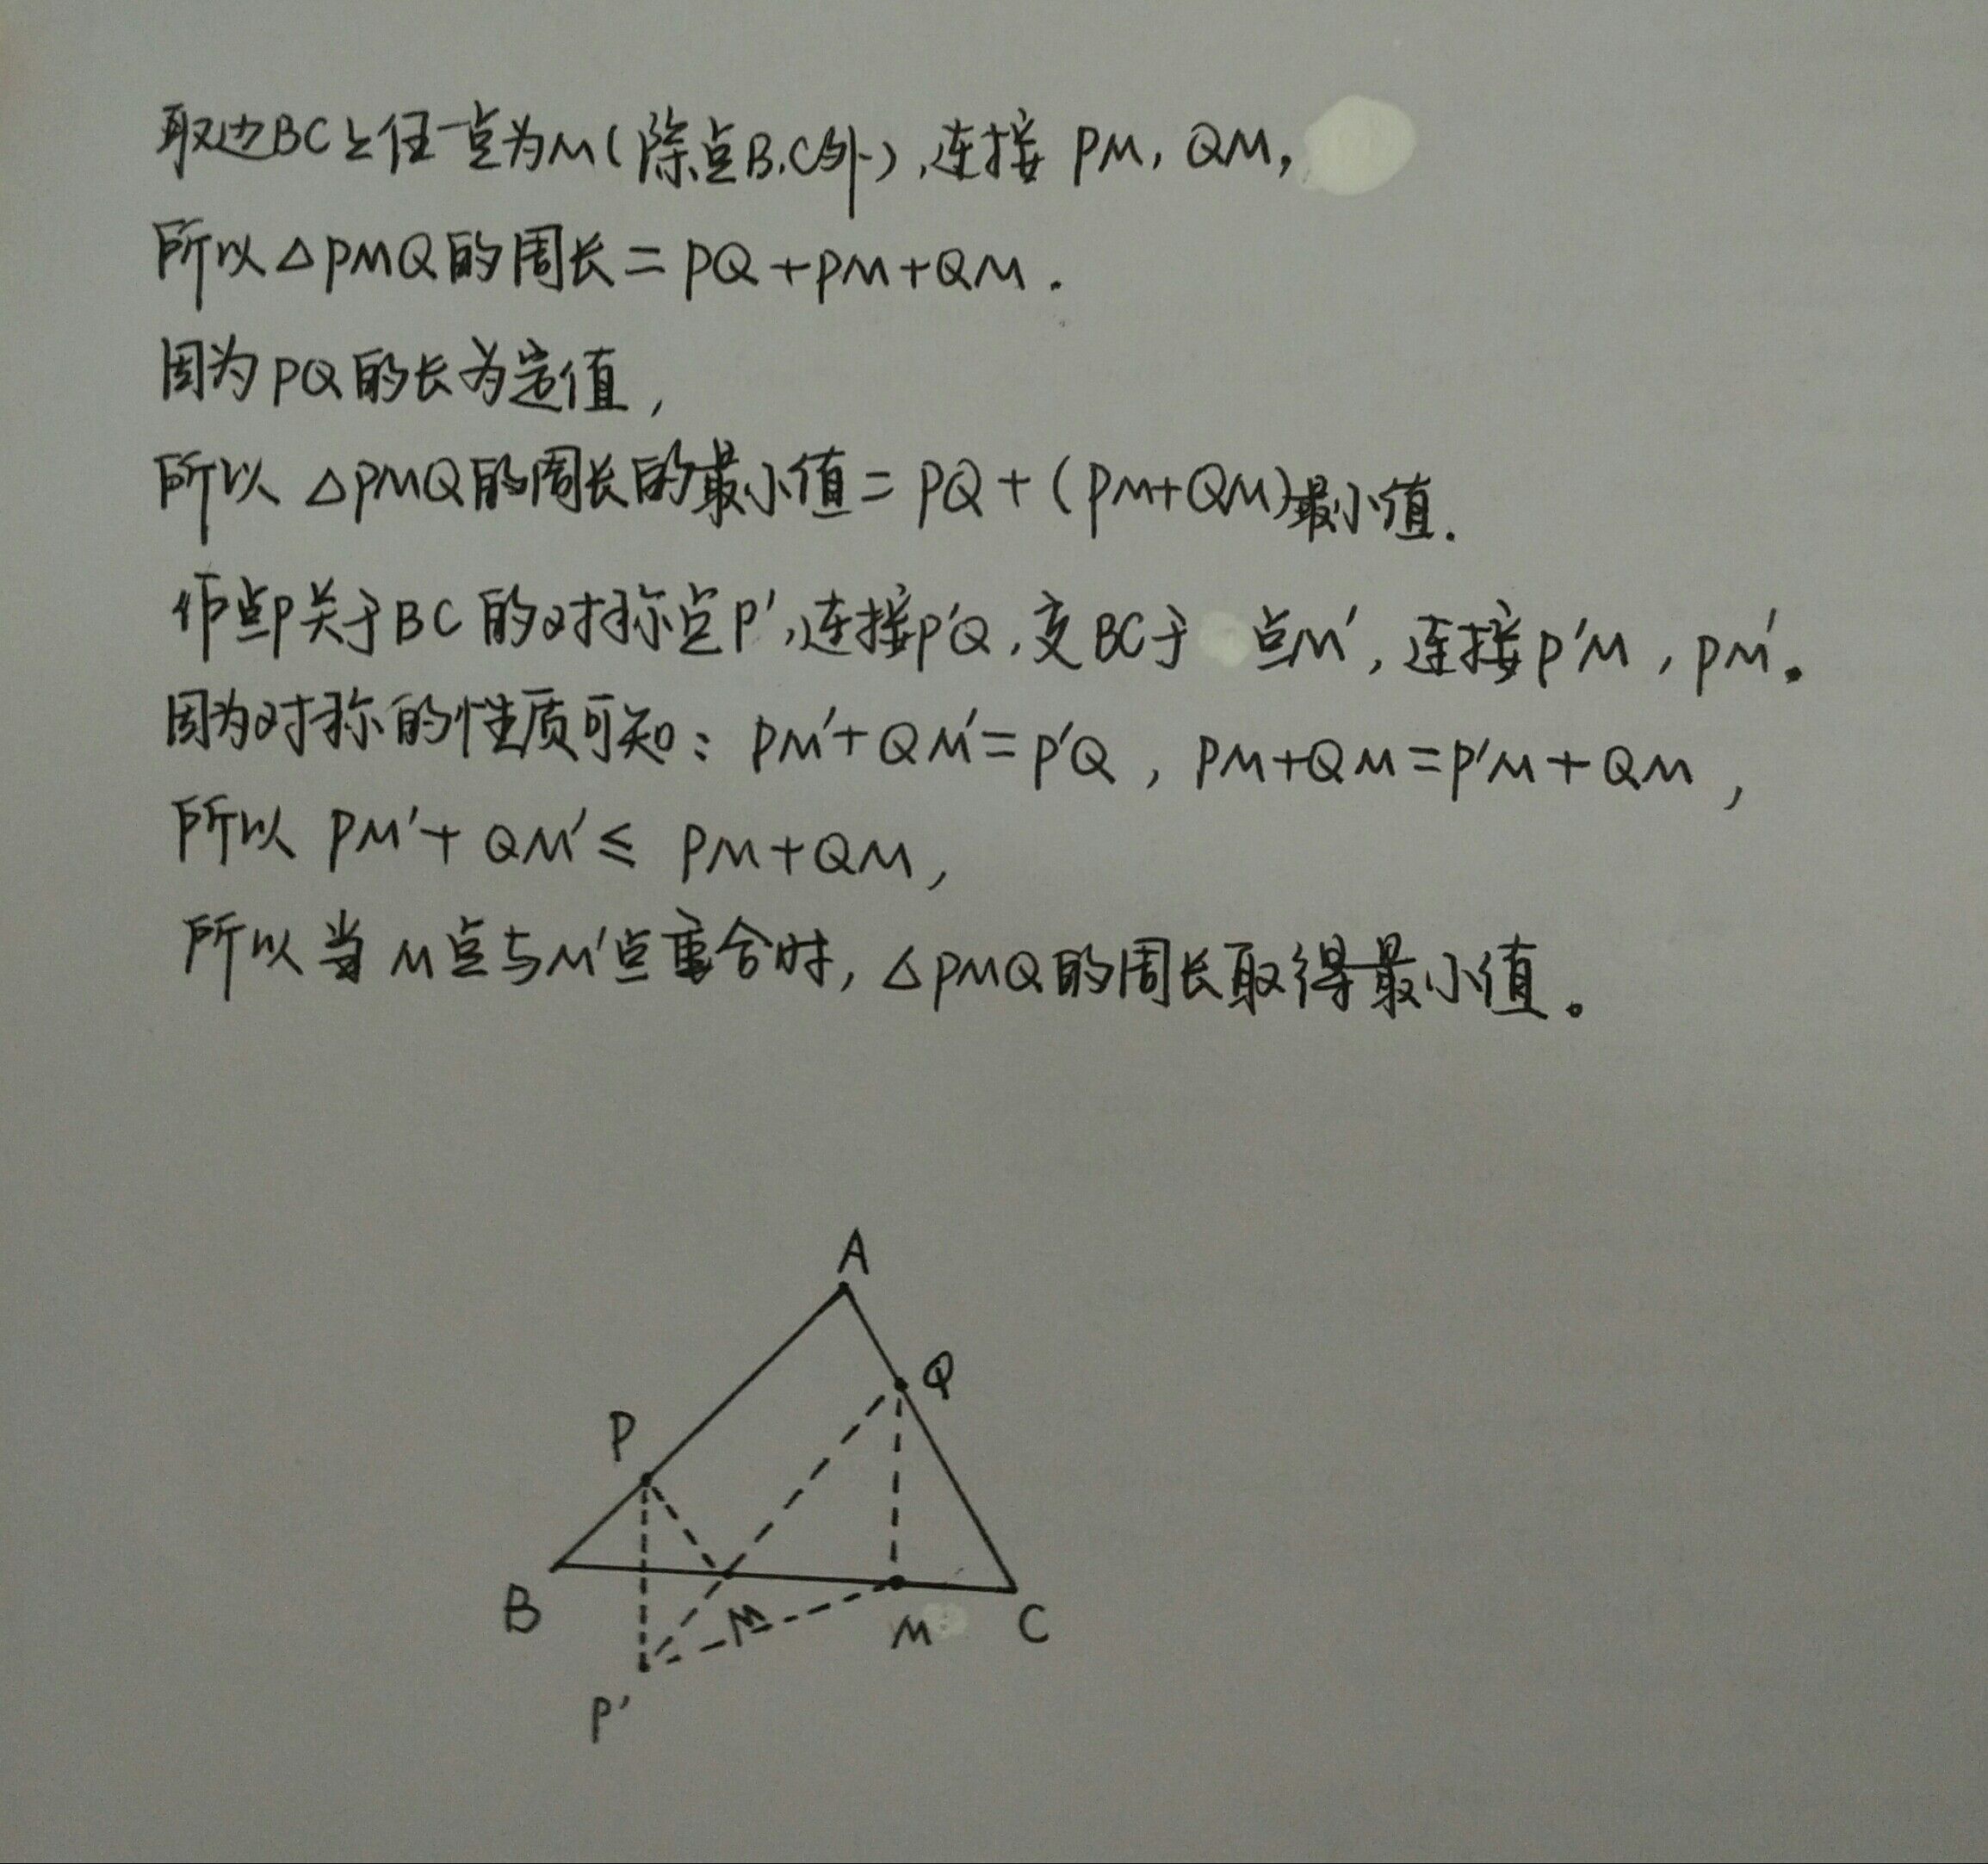 取边BC上任一点为M(除点B.C外),连接 PM, QM,
所以△PMQ的周长=PQ+PM+QM.
因为PQ的长为定值,
所以 △PMQ的周长的最小值=PQ+(PM+QM)最小值.
作点P关于BC的对称点P',连接P'Q,交BC于 点M',连接P'M,PM'。
因为对称的性质可知:PM'+QM'=P'Q,PM+QM=P'M+QM,
所以 PM'+QM'≤ PM+QM,
所以当M点与M'点重合时,△PMQ的周长取得最小值。
A
Q
P
B
M'
M
C
P'